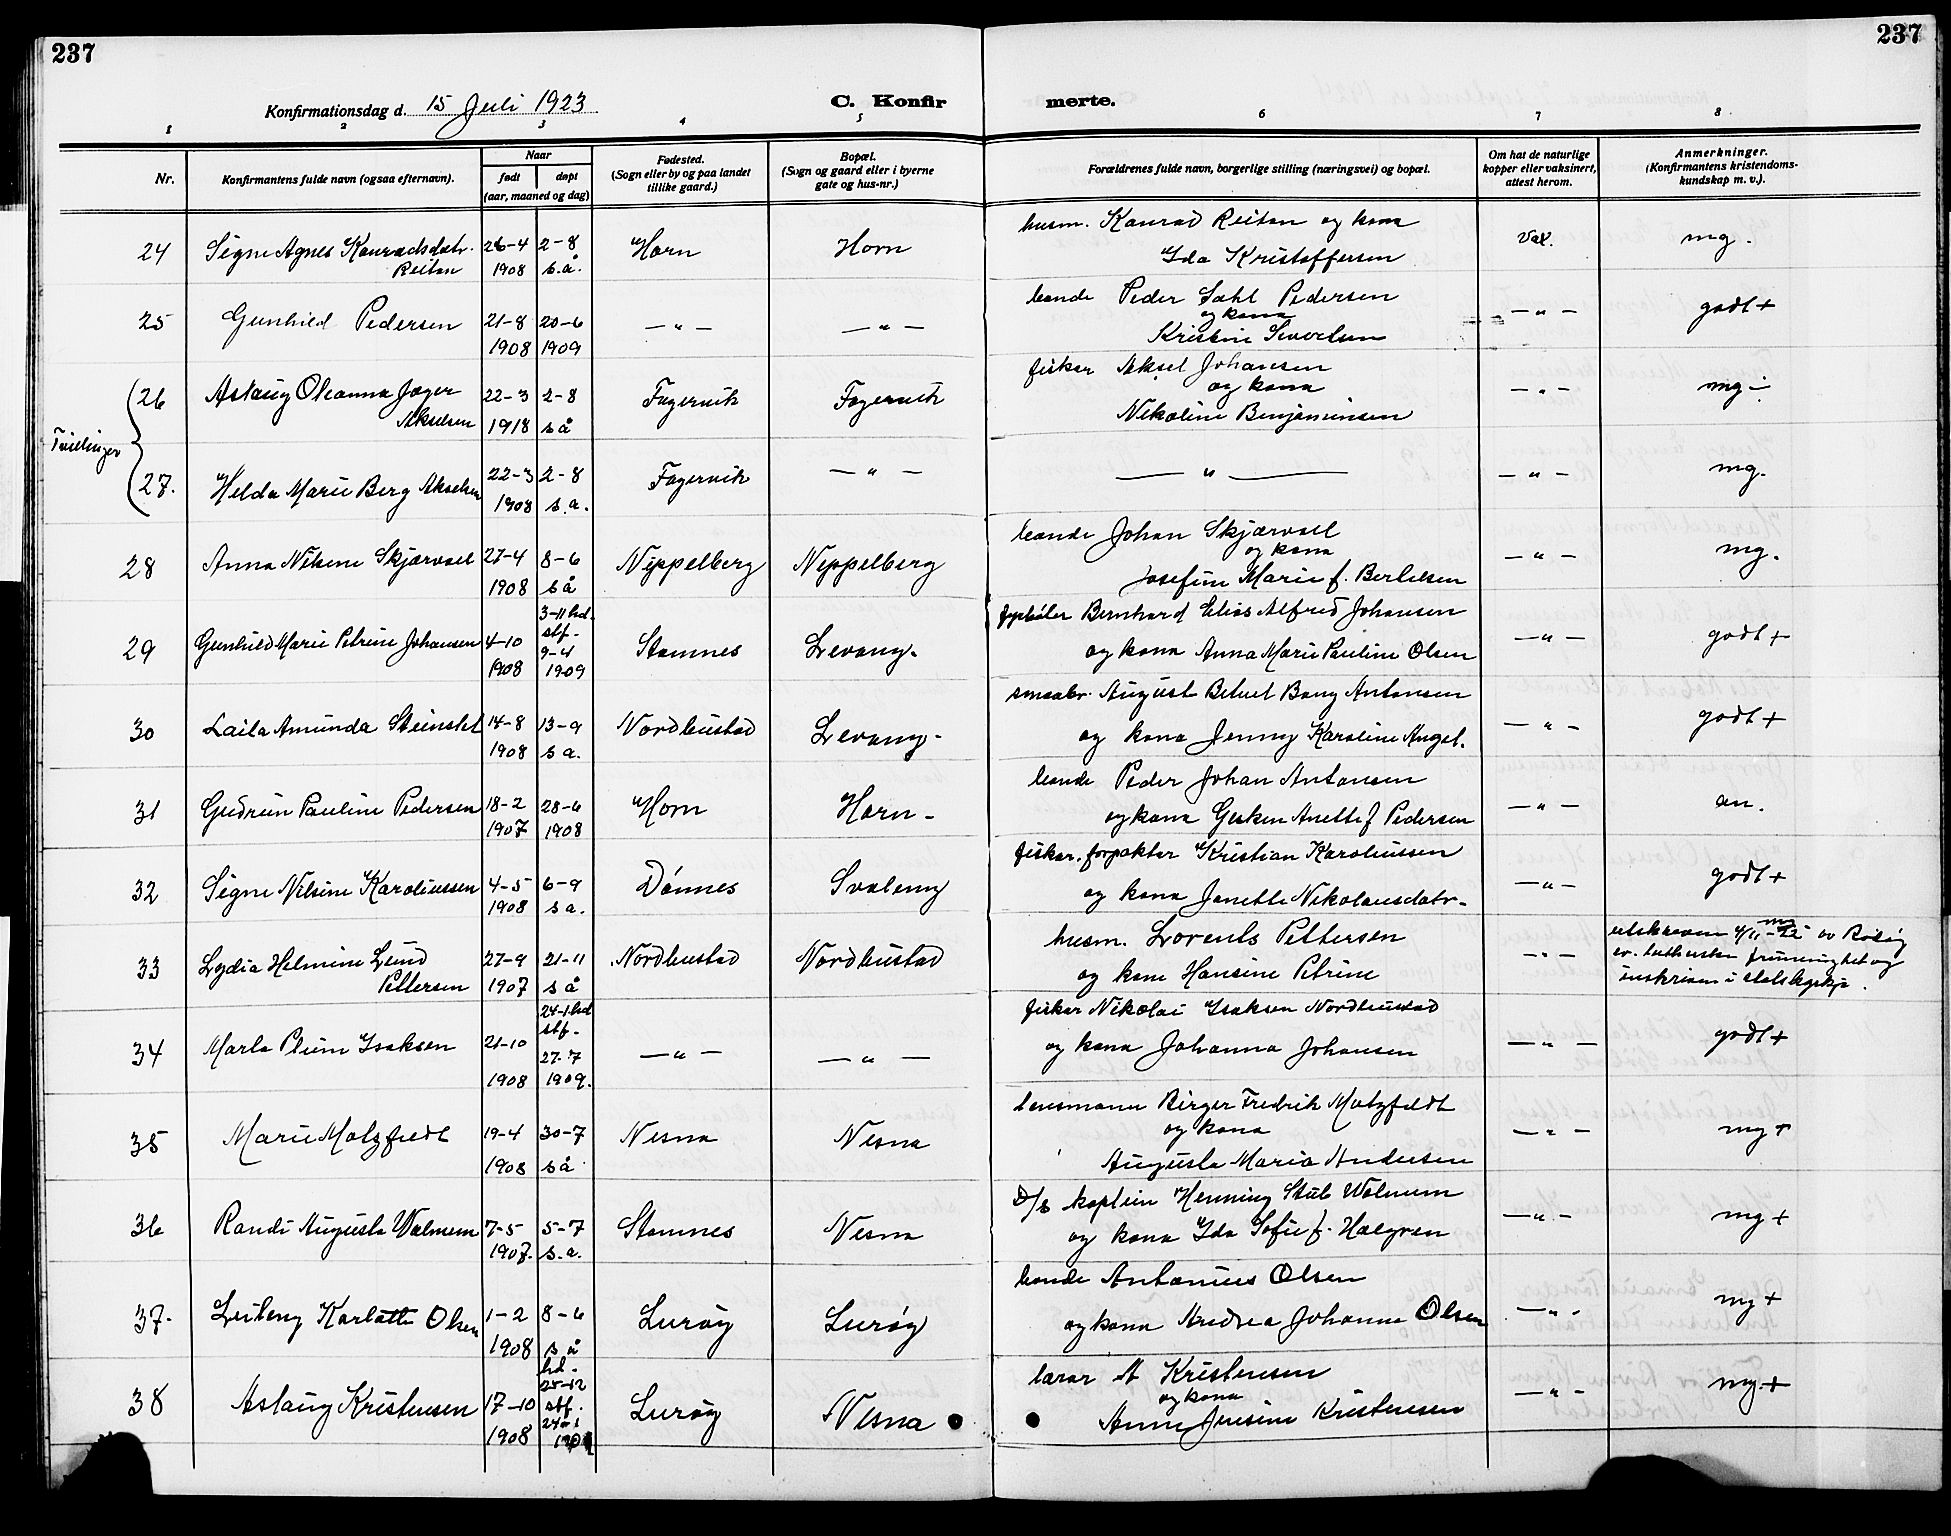 237
237
Konfirmationsdag d. 15 Juli 1923
C. Konfir
merte.
1 2 3 4 5 6 7 8
Nr.
Konfirmantens fulde navn (ogsaa efternavn).
Naar
født
døpt
(aar, maaned og dag)
Fødested.
(Sogn eller by og paa landet
tillike gaard.)
Bopæl.
(Sogn og gaard eller i byerne
gate og hus-nr.)
Forældrenes fulde navn, borgerlige stilling (næringsvei) og bopæl.
Om hat de naturlige
kopper eller vaksinert,
attest herom.
Anmerkninger.
(Konfirmantens kristendoms-
kundskap m. v.).
24 Signe Agnes Konradsdatr. 26-4 2-8 Horn Horn husm. Konrad Reiton og kona vax. mg.
Reiton 1908 s.å. Ida Kristoffersen
25 Gunhild Pedersen 21-8 20-6 —"— —"— bonde Peder Dahl Pedersen —"— godt+
1908 1909 og kona
Kristine Sivertsen
Tvillinger
26 Aslaug Oleanna Jæger 22-3 2-8 Fagervik Fagervik fisker Aksel Johansen —"— mg÷
Akselsen 1918 s å og kona
Nikoline Benjaminsen
27. Helda Marie Berg Akselsen 22-3 2-8 Fagervik —"— —"— —"— mg.
1908 s.a.
28 Anna Nilsine Skjærvoll 27-4 8-6 Nippelberg Nippelberg bonde Johan Skjærvoll —"— mg.
1908 s å og kona
Josefine Marie f. Bertelsen
29 Gunhild Marie Petrine Johansen 4-10 3-11 hd. Stamnes Levang. Bernhard Elias Alfred Johansen —"— godt+
1908 stf. 9-4 1909 og kona Anna Marie Pauline Olsen
30 Laila Amunda Steinslet 14-8 13-9 Nordhustad Levang- smaabr. August Betuel Bang Antonsen —"— godt+
1908 s a. og kona Jenny Karoline Angel.
31 Gudrun Pauline Pedersen 18-2 28-6 Horn Horn- bonde Peder Johan Antonsen —"— an.
1907 1908 og kona Gusken Anette f Pedersen
32 Signe Nilsine Karoliussen 4-5 6-9 Dønnes Svaleng fisker. forpakter Kristian Karoliussen —"— godt+
1908 s a. og kona Janette Nikolausdatr.
33 Lydia Helmine Lund 27-9 21-11 Nordhustad Nordhustad husm. Lorents Pettersen —"— mg
Pettersen 1907 s å og kona Hansine Petrine
utskreven 4/11-22 av Rødøy
ev. lutherske frimenighet og
innskreven i statskirkja.
34 Marla Plum Isaksen 21-10 24-1 hd —"— —"— fisker Nikolai Isaksen Nordhustad —"— godt+
1908 stf. 27-7 1909. og kona Johanna Johansen
35 Marie Motzfeldt 19-4 30-7 Nesna Nesna lensmann Birger Fredrik Motzfeldt —"— mg+
1908 s å og kona
Augusta Maria Andersen
36 Randi Augusta Walnum 7-5 5-7 Stamnes Nesna D/s kaptein Henning Stub Walnum —"— mg+
1907. s.a. og kona Ida Sofie f. Halgren
37. Karlotte Olsen 1-2 8-6 Lurøy Lurøy bonde Antonius Olsen —"— mg+
1908 s å og kona Andrea Johanna Olsen
38 Aslaug Kristensen 17-10 hd. Lurøy Nesna lærar A Kristensen —"— mg.+
1908 25-12 stf. og kona
Anne Jensine Kristensen